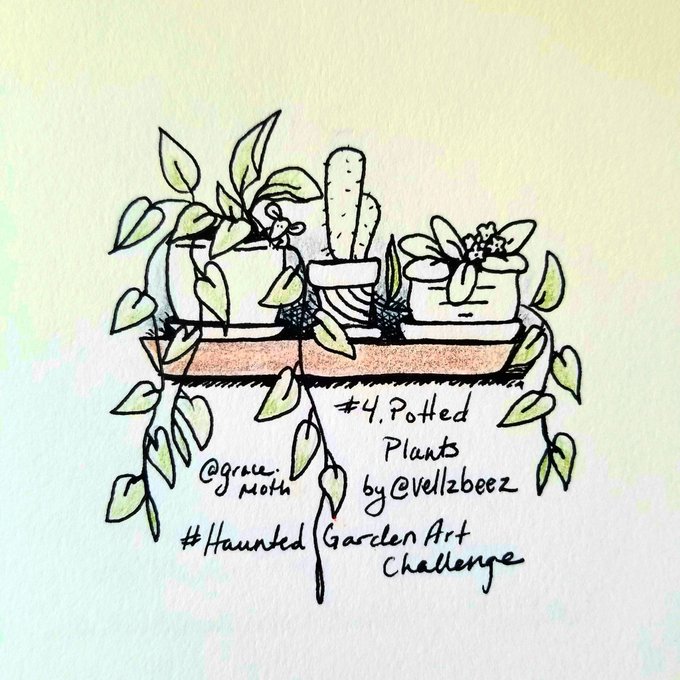 #4. Potted
Plants
by @vellzbeez
@grace.
moth
#Haunted Garden Art
Challenge